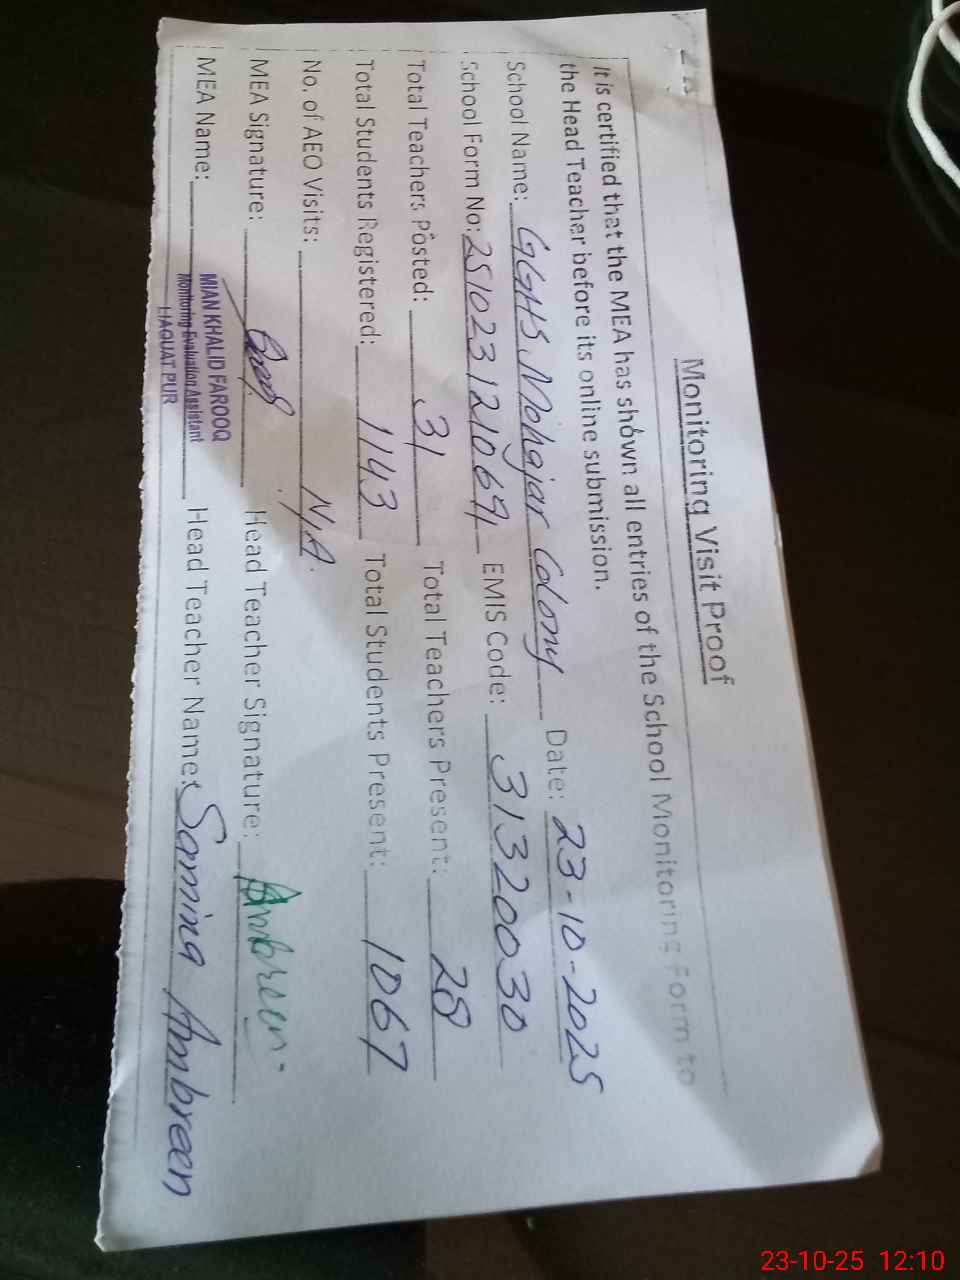 Monitoring Visit Proof
It is certified that the MEA has shown all entries of the School Monitoring Form to
the Head Teacher before its online submission.
School Name: GGHS Mohajar Colony Date: 23-10-2025
School Form No: EMIS Code: 31320030
Total Teachers Posted: 31 Total Teachers Present: 28
Total Students Registered: 1143 Total Students Present: 1067
No. of AEO Visits: N/A.
MEA Signature: Head Teacher Signature: Ambreen
MEA Name: MIAN KHALID FAROOQ Head Teacher Name: Samina Ambreen
Monitoring Evaluation Assistant
LIAQUAT PUR
23-10-25 12:10